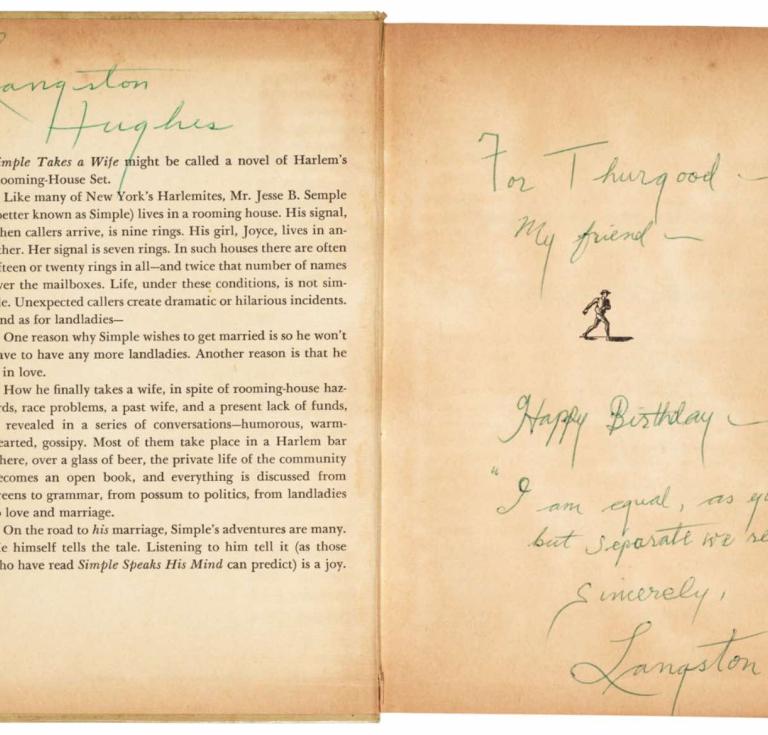 Langston
Hughes
imple Takes a Wife might be called a novel of Harlem's
ooming-House Set.
Like many of New York's Harlemites, Mr. Jesse B. Semple
etter known as Simple) lives in a rooming house. His signal,
hen callers arrive, is nine rings. His girl, Joyce, lives in an-
ther. Her signal is seven rings. In such houses there are often
fteen or twenty rings in all—and twice that number of names
ver the mailboxes. Life, under these conditions, is not sim-
le. Unexpected callers create dramatic or hilarious incidents.
nd as for landladies—
One reason why Simple wishes to get married is so he won't
ave to have any more landladies. Another reason is that he
in love.
How he finally takes a wife, in spite of rooming-house haz-
rds, race problems, a past wife, and a present lack of funds,
revealed in a series of conversations—humorous, warm-
earted, gossipy. Most of them take place in a Harlem bar
here, over a glass of beer, the private life of the community
ecomes an open book, and everything is discussed from
reens to grammar, from possum to politics, from landladies
o love and marriage.
On the road to his marriage, Simple's adventures are many.
e himself tells the tale. Listening to him tell it (as those
ho have read Simple Speaks His Mind can predict) is a joy.
For Thurgood —
My friend —
Happy Birthday —
"I am equal, as
but separate we
Sincerely,
Langston